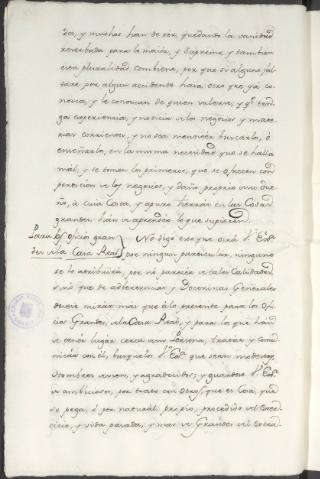 da, y muchas han de ser, quedando la vanidad
reservada para lo maior, y supremo y tambien
esta pluralidad combiene, por que si alguno fal-
tare por algun accidente haia otro que ya co-
nozca, y le conozcan de quien valerse, y qe. ten-
ga experiencia, y noticia de los negocios y mate-
rias corrientes, y no sea menester buscarlo, o
enseñarlo, en la misma necesidad que se halla
mal, y se toman los primeros, que se ofrecen con
perdicion de los negocios, y daño proprio del due-
ño, à cuia Costa, y a puros hierros en las Cosas
grandes han de aprender lo que supieren
Para los oficios gran-
des de la Casa Real
No digo esto que oirà V. Exa.
por ningun particular, ninguno
se lo atribuirà, por no parecer de tales Calidades,
sino que de advertencias y Doctrinas Generales
deve mirar mas que à lo presente para lo ofi-
cios Grandes de la Casa Real, y para lo que han
de tener lugar cerca de su Persona, tratar y comu-
nicar con èl, busquelos V. Exa. que sean modestos
Hombres de vien, y agradecidos; y guardese V. Exa.
de ambiciosos, por trato con otros, que es Cosa, que
se pega, ó por natural proprio, procedido del exer-
cicio, y vida pasada, y mas de Grandes